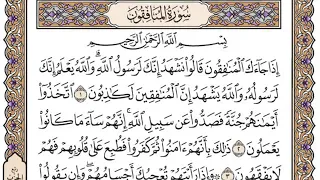 سُورَةُ المُنَافِقُونَ
بِسْمِ اللَّهِ الرَّحْمَٰنِ الرَّحِيمِ
إِذَا جَاءَكَ الْمُنَافِقُونَ قَالُوا نَشْهَدُ إِنَّكَ لَرَسُولُ اللَّهِ وَاللَّهُ يَعْلَمُ إِنَّكَ
لَرَسُولُهُ وَاللَّهُ يَشْهَدُ إِنَّ الْمُنَافِقِينَ لَكَاذِبُونَ ١ اتَّخَذُوا
أَيْمَانَهُمْ جُنَّةً فَصَدُّوا عَن سَبِيلِ اللَّهِ إِنَّهُمْ سَاءَ مَا كَانُوا
يَعْمَلُونَ ٢ ذَٰلِكَ بِأَنَّهُمْ ءَامَنُوا ثُمَّ كَفَرُوا فَطُبِعَ عَلَىٰ قُلُوبِهِمْ فَهُمْ
لَا يَفْقَهُونَ ٣ وَإِذَا رَأَيْتَهُمْ تُعْجِبُكَ أَجْسَامُهُمْ وَإِن يَقُولُوا